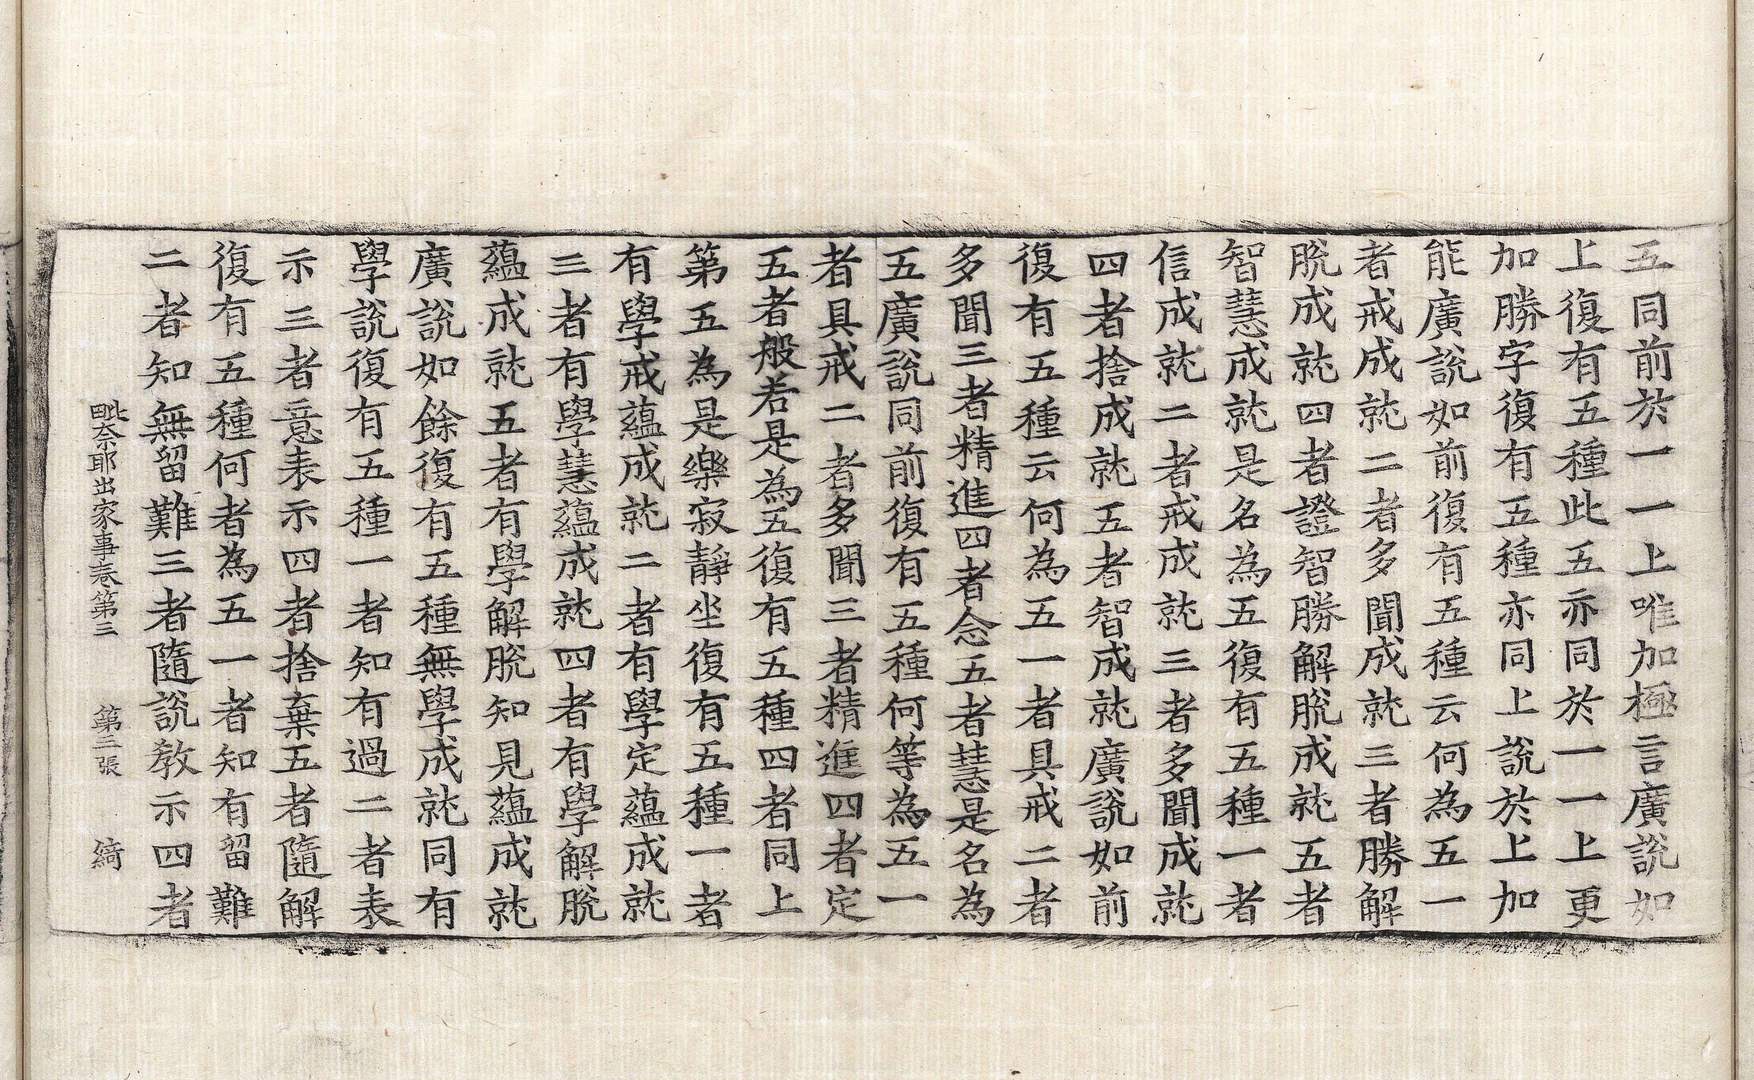 五同前於一一上唯加極言廣說如
上復有五種此五亦同於一一上更
加勝字復有五種亦同上說於上加
能廣說如前復有五種云何為五一
者戒成就二者多聞成就三者勝解
脫成就四者證智勝解脫成就五者
智慧成就是名為五復有五種一者
信成就二者戒成就三者多聞成就
四者捨成就五者智成就廣說如前
復有五種云何為五一者具戒二者
多聞三者精進四者念五者慧是名為
五廣說同前復有五種何等為五一
者具戒二者多聞三者精進四者定
五者般若是為五復有五種四者同上
第五為是樂寂靜坐復有五種一者
有學戒蘊成就二者有學定蘊成就
三者有學慧蘊成就四者有學解脫
蘊成就五者有學解脫知見蘊成就
廣說如餘復有五種無學成就同有
學說復有五種一者知有過二者表
示三者意表示四者捨棄五者隨解
復有五種何者為五一者知有留難
二者知無留難三者隨說教示四者
毗奈耶出家事卷第三 第三張 綺